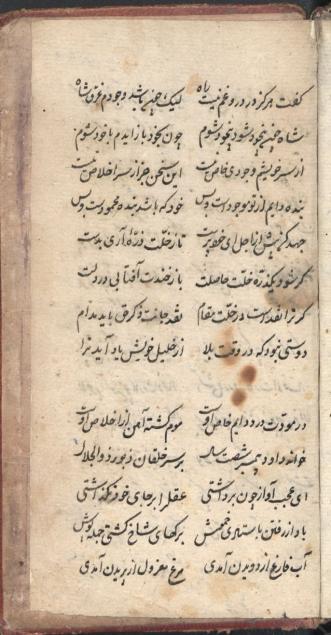 گفت هرگز در درو غم نیست راه لیک چنین باشد وجودم غرق شاه
شاه چنین بیخود شود بیخود شوم چون بخود باز آیدم با خود شوم
از سر خویشم وجودی خاص نیست این سخن جز از سر اخلاص نیست
بنده دایم از تو موجود است و بس خود که باشد بنده محمود است و بس
جهد کن پیش از اجل ای خود پرست تا ز خلت ذره آری بدست
گر شود یک ذره خلت حاصلت باز خندد آفتابی در دلت
گر ترا نقد است در خلت مقام نقد جانت ذکر حق باید مدام
دوستی نبود که در وقت بلا از خلیل خویش یاد آید ترا
در مودت درد دایم خاص اوست موم گشته آهن از اخلاص اوست
خوانده داود پیمبر شصت سال بر سر خلقان زبور ذوالجلال
ای عجب آواز چون برداشتی عقل را بر جای خود نگذاشتی
باد از رفتن باستادی خموش برگهای شاخ گشتی جمله گوش
آب فارغ از دویدن آمدی مرغ معزول از پریدن آمدی